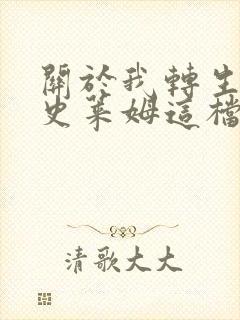 關於我轉生
史萊姆這檔
清歌大大